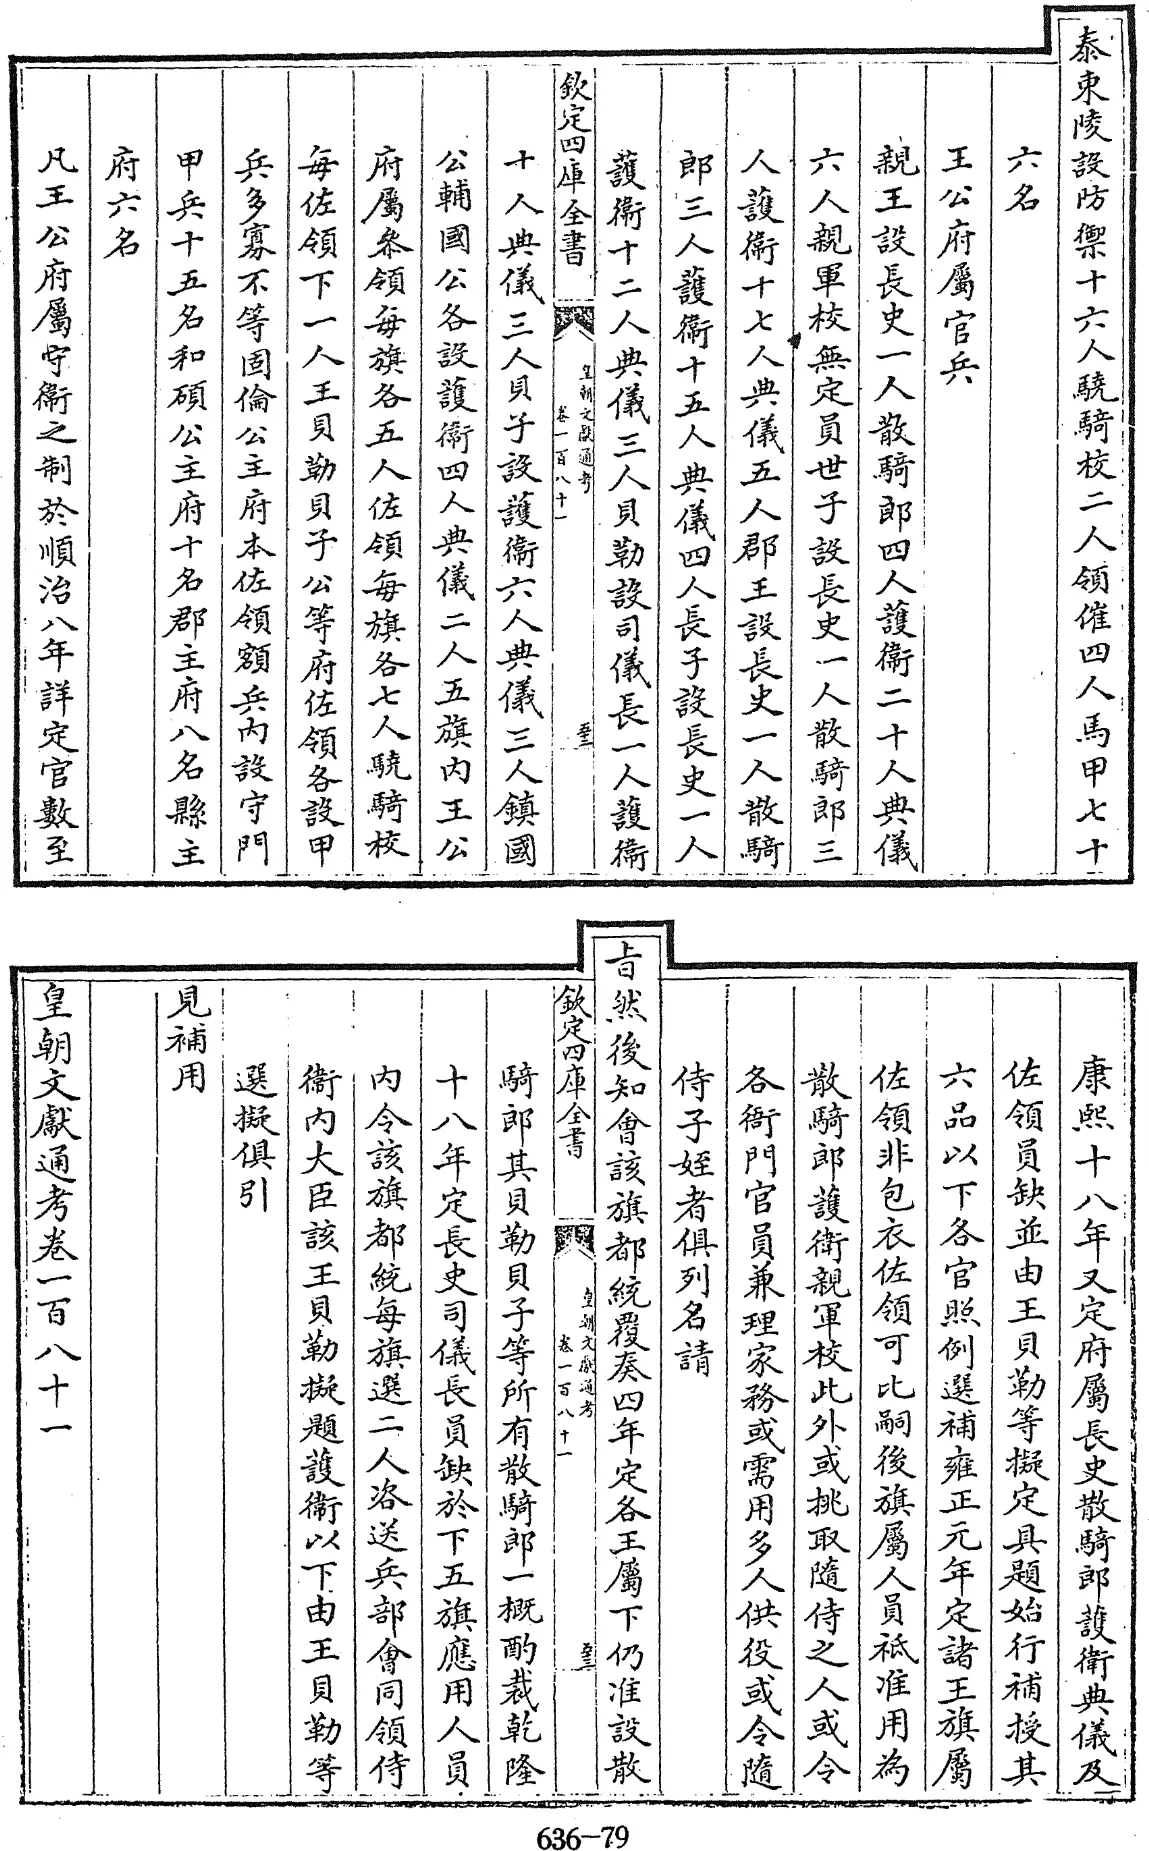 泰東陵設防禦十六人驍騎校二人領催四人馬甲七十
六名
王公府屬官兵
親王設長史一人散騎郎四人護衛二十人典儀
六人親軍校無定員世子設長史一人散騎郎三
人護衛十七人典儀五人郡王設長史一人散騎
郎三人護衛十五人典儀四人長子設長史一人
護衛十二人典儀三人貝勒設司儀長一人護衛
欽定四庫全書
皇朝文獻通考
卷一百八十一
十人典儀三人貝子設護衛六人典儀三人鎮國
公輔國公各設護衛四人典儀二人五旗内王公
府屬參領每旗各五人佐領每旗各七人驍騎校
每佐領下一人王貝勒貝子公等府佐領各設甲
兵多寡不等固倫公主府本佐領額兵内設守門
甲兵十五名和碩公主府十名郡主府八名縣主
府六名
凡王公府屬守衛之制於順治八年詳定官數至
康熙十八年又定府屬長史散騎郎護衛典儀及
佐領員缺並由王貝勒等擬定具題始行補授其
六品以下各官照例選補雍正元年定諸王旗屬
佐領非包衣佐領可比嗣後旗屬人員祗准用為
散騎郎護衛親軍校此外或挑取隨侍之人或令
各衙門官員兼理家務或需用多人供役或令隨
侍子姪者俱列名請
旨然後知會該旗都統覆奏四年定各王屬下仍准設散
欽定四庫全書
皇朝文獻通考
卷一百八十一
騎郎其貝勒貝子等所有散騎郎一概酌裁乾隆
十八年定長史司儀長員缺於下五旗應用人員
内令該旗都統每旗選二人咨送兵部會同領侍
衛内大臣該王貝勒擬題護衛以下由王貝勒等
選擬俱引
見補用
皇朝文獻通考卷一百八十一
636-79